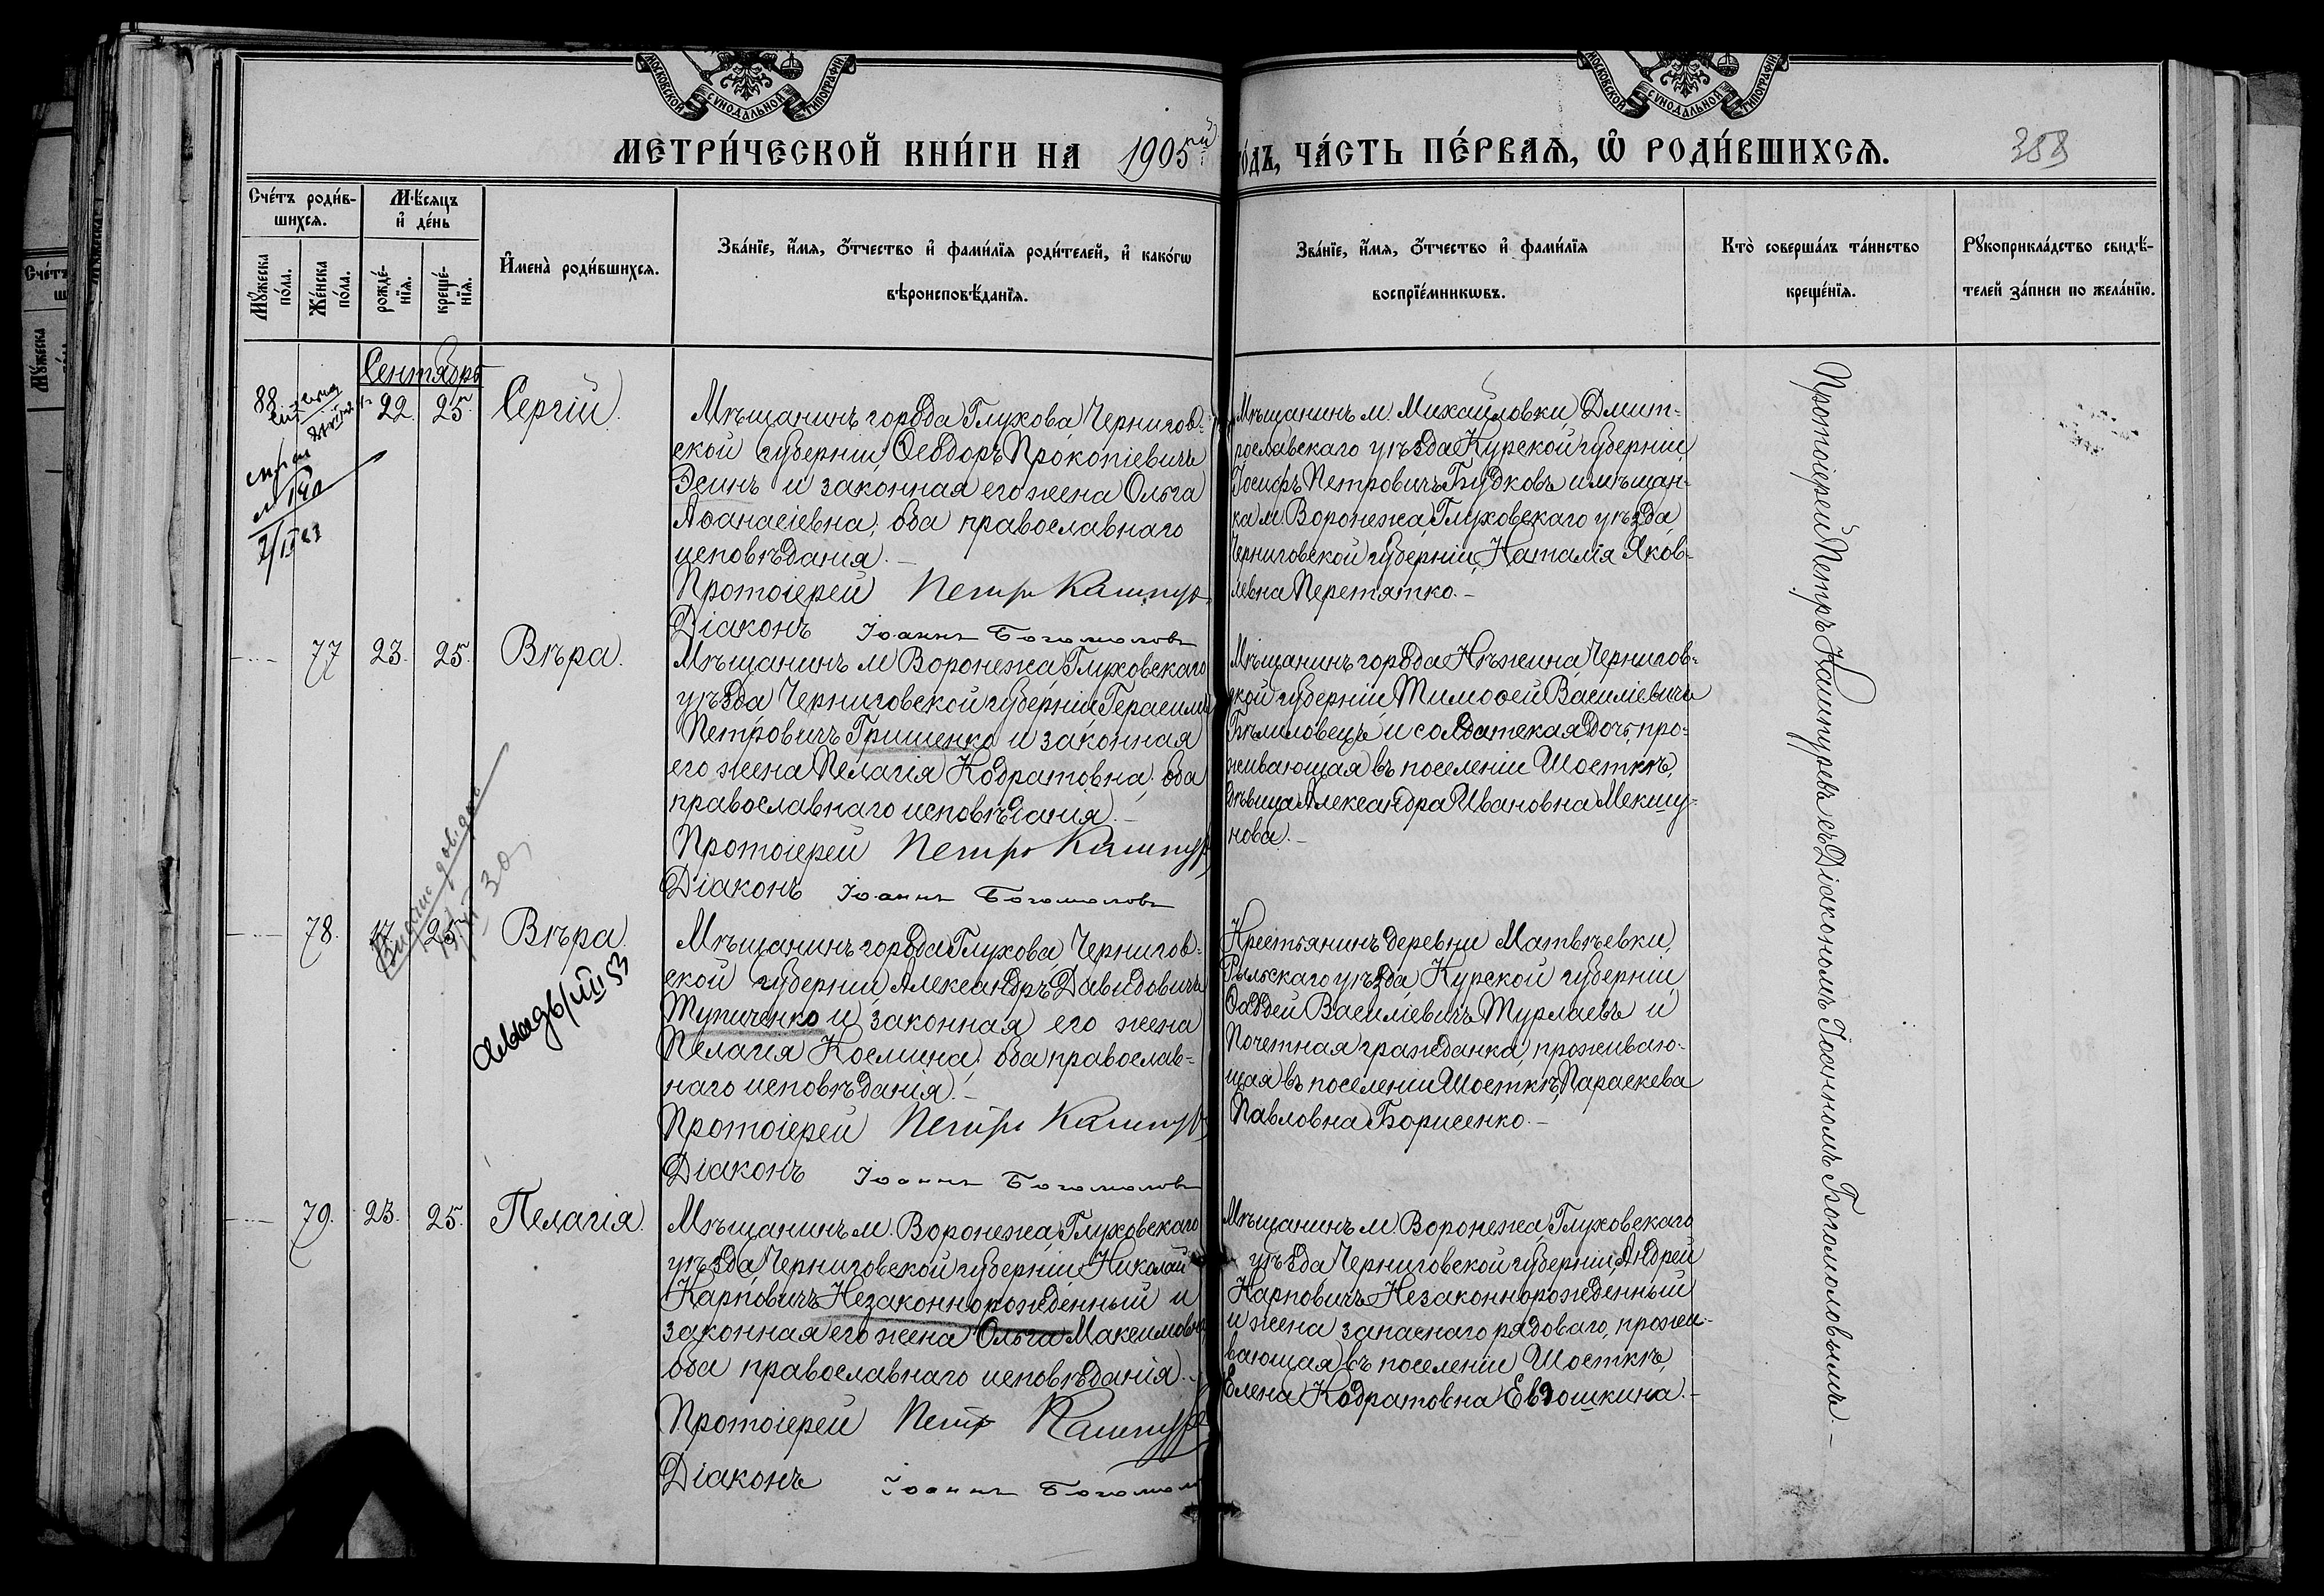 МОСКОВСКОЙ СѴНОДАЛЬНОЙ ТИПОГРАФІИ
МОСКОВСКОЙ СѴНОДАЛЬНОЙ ТИПОГРАФІИ
МЕТРИ́ЧЕСКОЙ КНИ́ГИ НА 1905
ЧА́СТЬ ПЕ́РВАѦ, Ѽ РОДИ́ВШИХСѦ.
Сче́тъ роди́в-
шихсѧ.
Мꙋ́жеска по́ла.
Же́нска по́ла.
Мѣ́сяцъ
и҆ де́нь
рожде́-
нїѧ.
креще́-
нїѧ.
И҆мена̀ роди́вшихсѧ.
Зва́нїе, и҆́мѧ, ѻ҆́тчество и҆ фами́лїѧ роди́телей, и҆ како́гѡ
вѣроисповѣ́данїѧ.
Зва́нїе, и҆́мѧ, ѻ҆́тчество и҆ фами́лїѧ
воспрїе́мникѡвъ.
Кто̀ соверша́лъ та́инство
креще́нїѧ.
Рꙋкоприкла́дство свидѣ́-
телей за́писи по жела́нїю.
Сентябрь
88
22. 25. Сергій.
Мѣщанинъ города Глухова, Чернигов-
ской губерніи, Ѳеодоръ Прокопіевичъ
Эсинъ и законная его жена Ольга
Аѳанасіевна; оба православнаго
исповѣданія.–
Протоіерей Петръ Кашпур
Діаконъ Іоаннъ Богомолов
Мѣщанинъ м. Михайловки, Дмит-
рославскаго уѣзда, Курской губерніи
Іосифъ Петровичъ Будковъ и мѣщан-
ка м. Воронежа, Глуховскаго уѣзда,
Черниговской губерніи, Наталія Яков-
левна Перетятко.–
77 23. 25. Вѣра.
Мѣщанинъ м. Воронежа, Глуховскаго
уѣзда Черниговской губерніи Герасимъ
Петровичъ Гришенко и законная
его жена Пелагія Кодратовна; оба
православнаго исповѣданія.–
Протоіерей Петръ Кашпур
Діаконъ Іоаннъ Богомолов
Мѣщанинъ города Нѣжина Чернигов-
ской губерніи Тимоѳей Василіевичъ
и солдатская дочь, про-
живающая въ поселеніи Шосткѣ,
дѣвица Александра Ивановна Мекшу-
нова.–
78. 25. Вѣра.
Мѣщанинъ города Глухова, Чернигов-
ской губерніи, Александръ Давидовичъ
Тупиченко и законная его жена
Пелагія Космина; оба православ-
наго исповѣданія.–
Протоіерей Петръ Кашпур
Діаконъ Іоаннъ Богомолов
Крестьянинъ деревни Матвѣевки,
Рыльскаго уѣзда, Курской губерніи,
Ѳаддей Василіевичъ Турлаевъ и
Почетная гражданка, проживаю-
щая въ поселеніи Шосткѣ, Параскева
Павловна Борисенко.–
79. 23. 25. Пелагія.
Мѣщанинъ м. Воронежа, Глуховскаго
уѣзда, Черниговской губерніи, Николай
Карповичъ Незаконнорожденный и
законная его жена Ольга Максимовна
оба православнаго исповѣданія.–
Протоіерей Петръ Кашпур
Діаконъ Іоаннъ Богомол
Мѣщанинъ м. Воронежа, Глуховскаго
уѣзда Черниговской губерніи, Андрей
Карповичъ Незаконнорожденный
и жена запаснаго рядоваго, прожи-
вающая въ поселеніи Шосткѣ,
Елена Кодратовна Евдошкина.–
Протоіерей Петръ Кашпуревъ съ Діакономъ Іоанномъ Богомоловымъ.–